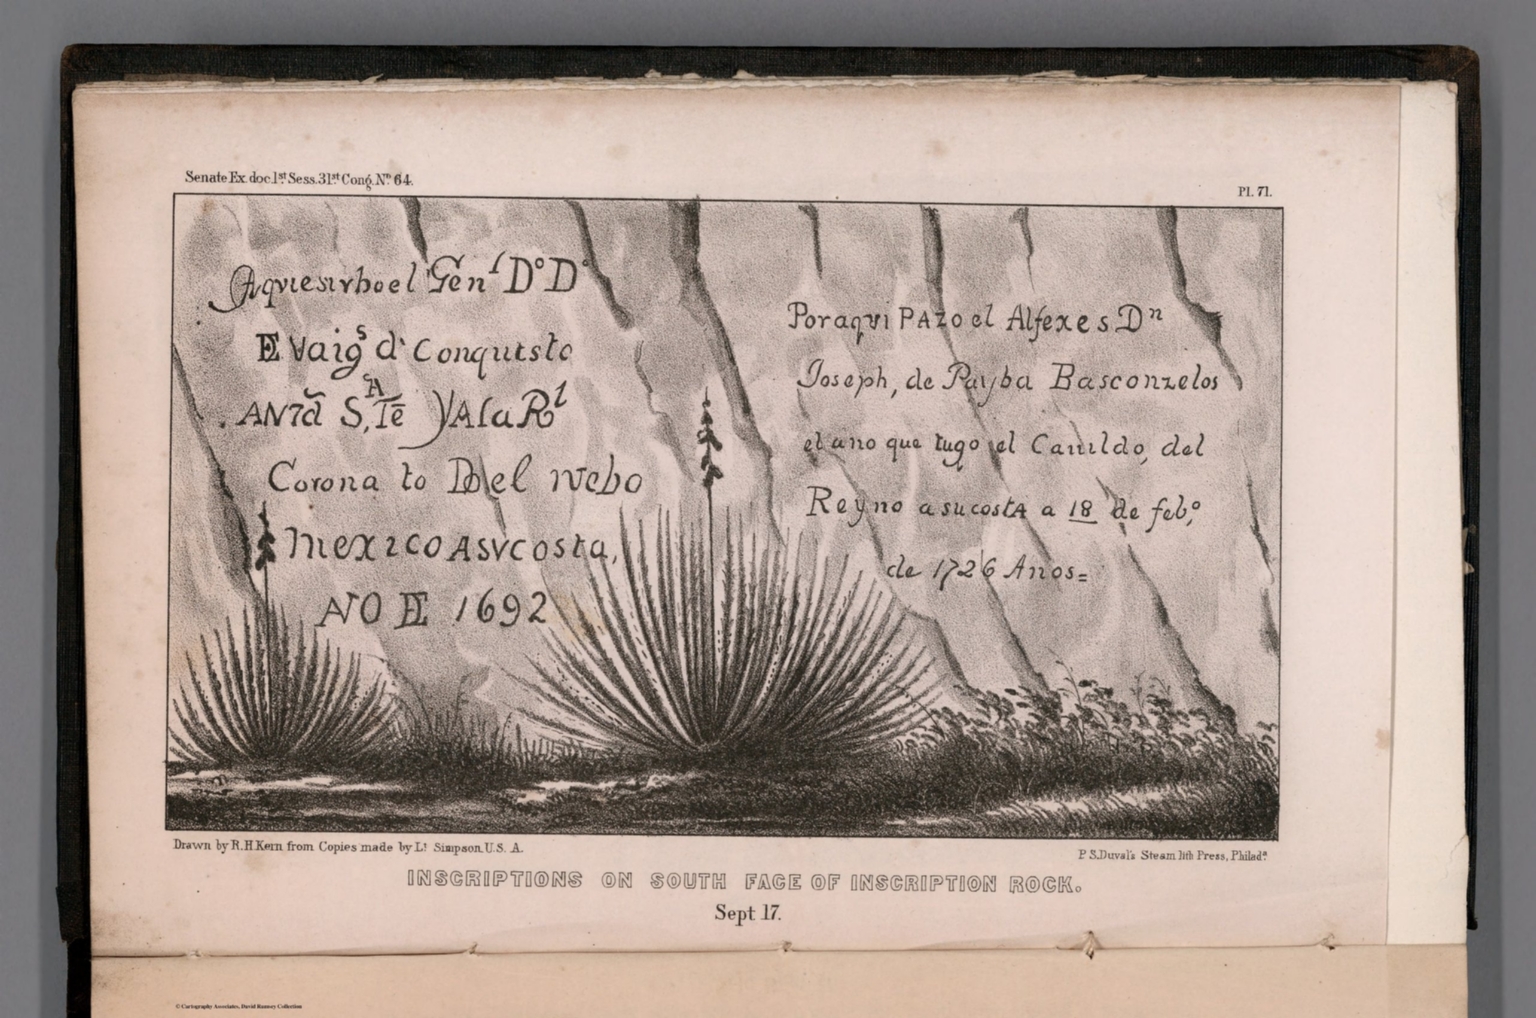 Senate Ex. doc. 1st Sess. 31st Cong. No. 64.
Pl. 71.
Aqviesirboel Genl Do D
E Vaigs d' Conquisto
ANTd S,TeA YAlaRl
Corona to Del Nvebo
Mexico Asvcosta,
AÑO DE 1692
Poraqvi PAzo el Alfexes Dn
Joseph, de Payba Basconzelos
el ano que tugo el Cauildo, del
Reyno asucostA a 18 de febo,
de 1726 Anos=
Drawn by R.H.Kern from Copies made by Lt Simpson U.S. A.
P S.Duval's Steam lith Press, Philada.
INSCRIPTIONS ON SOUTH FACE OF INSCRIPTION ROCK.
Sept 17.
© Cartography Associates, David Rumsey Collection